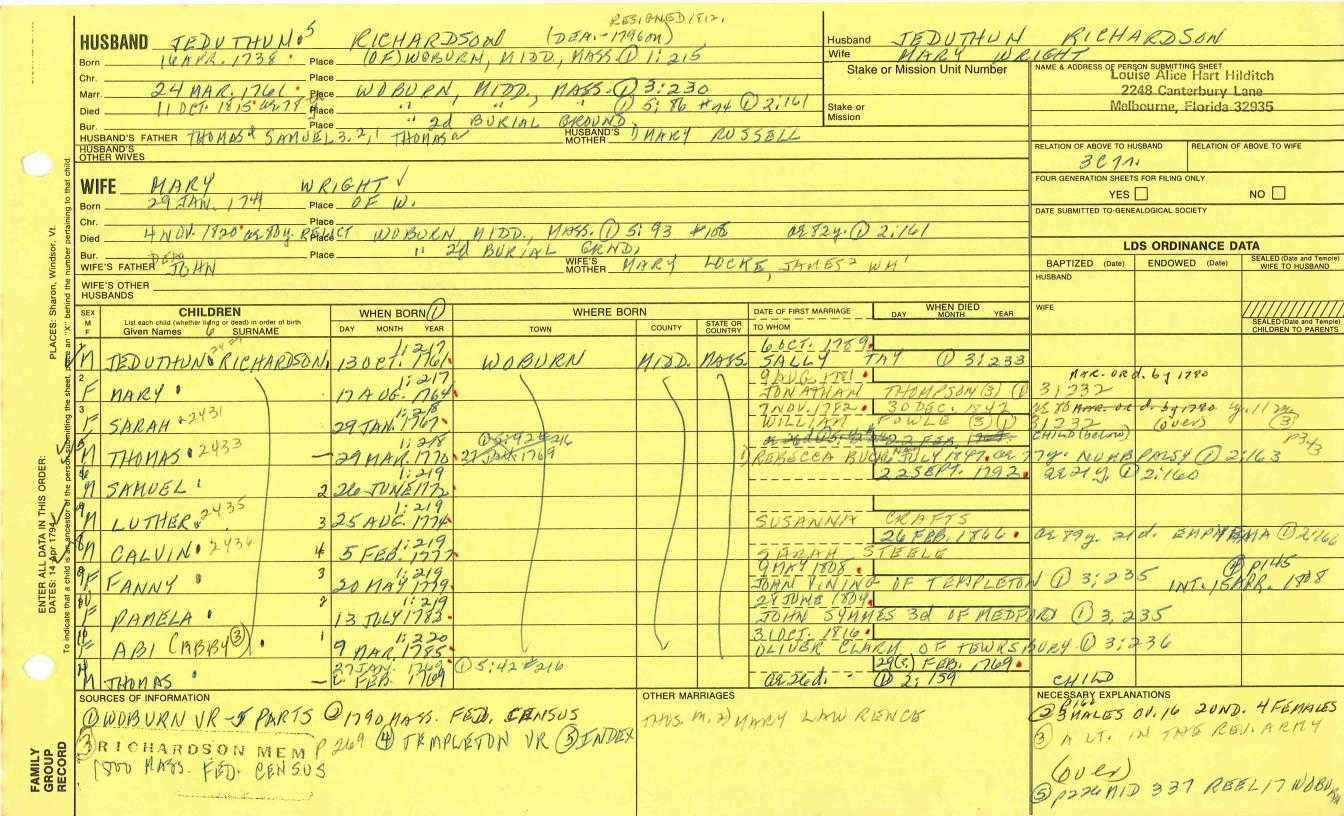 RESIGNED 1812.
HUSBAND JEDUTHUN 5 RICHARDSON (DEA.-1796 on)
Born 16 APR. 1738 Place (OF) WOBURN, MIDD., MASS. ① 1:215
Chr. Place
Marr. 24 MAR. 1761 Place WOBURN, MIDD., MASS. ① 3:230
Died 11 OCT. 1815 ae 78 Place " " " ① 5:86 #74 ① 2:161
Bur. Place " 2d BURIAL GROUND,
HUSBAND'S FATHER THOMAS 4 SAMUEL 3, 2, THOMAS HUSBAND'S MOTHER MARY RUSSELL
HUSBAND'S OTHER WIVES
WIFE MARY WRIGHT ✓
Born 29 JAN. 1741 Place OF W.
Chr. Place
Died 4 NOV. 1820 ae 80y. RELICT Place WOBURN MIDD., MASS. ① 5:93 #108 ae 82y. ① 2:161
Bur. Place " 2d BURIAL GRND,
WIFE'S FATHER DEA. JOHN WIFE'S MOTHER MARY LOCKE, JAMES 2 WM 1
WIFE'S OTHER HUSBANDS
Husband JEDUTHUN RICHARDSON
Wife MARY WRIGHT
Stake or Mission Unit Number
Stake or Mission
NAME & ADDRESS OF PERSON SUBMITTING SHEET
Louise Alice Hart Hilditch
2248 Canterbury Lane
Melbourne, Florida 32935
RELATION OF ABOVE TO HUSBAND RELATION OF ABOVE TO WIFE
3C7r.
FOUR GENERATION SHEETS FOR FILING ONLY
YES NO
DATE SUBMITTED TO GENEALOGICAL SOCIETY
LDS ORDINANCE DATA
BAPTIZED (Date) ENDOWED (Date) SEALED (Date and Temple) WIFE TO HUSBAND
HUSBAND
WIFE
SEALED (Date and Temple) CHILDREN TO PARENTS
SEX M F
CHILDREN
List each child (whether living or dead) in order of birth
Given Names SURNAME
WHEN BORN ①
DAY MONTH YEAR
WHERE BORN
TOWN COUNTY STATE OR COUNTRY
DATE OF FIRST MARRIAGE
TO WHOM
WHEN DIED
DAY MONTH YEAR
1:217 6 OCT. 1789
1 M JEDUTHUN 6 RICHARDSON 13 OCT. 1761 WOBURN MIDD. MASS. SALLY TAY ① 3:233
1:217 9 AUG. 1781 MAR. ORD. by 1790
2 F MARY 17 AUG. 1764 JONATHAN THOMPSON (3) ① 3:232
1:218 7 NOV. 1782 30 DEC. 1847
3 F SARAH 2431 29 JAN. 1767 WILLIAM FOWLE (3) ① 3:232 (over) (3)
1:218 ① 5:42 #216 CHILD (below)
5 M THOMAS 2433 29 MAR. 1770 REBECCA JULY 1847 ae 77y. NUMB PALSY ① 2:163
1:219 22 SEPT. 1792 ae 21y. ① 2:160
6 M SAMUEL 2 26 JUNE 1772
1:219
M LUTHER 2435 3 25 AUG. 1774 SUSANNA CRAFTS
1:219 26 FEB. 1866 ae 89y. 21d. EMPYEMA ① 2:166
8 M CALVIN 2436 4 5 FEB. 1777 SARAH STEELE
1:219 9 MAY 1808 ④ p145
9 F FANNY 3 20 MAY 1779 JOHN VINING OF TEMPLETON ① 3:235 INT. 15 APR. 1808
1:219 28 JUNE 1804
10 F PAMELA 2 13 JULY 1782 JOHN SYMMES 3d OF MEDFORD ① 3:235
1:220 31 OCT. 1816
F ABI (ABBY ③) 1 9 MAR. 1785 OLIVER CLARK OF TEWKSBURY ① 3:236
27 JAN. 1769 ① 5:42 #216 29(?) FEB. 1769
4 M THOMAS — FEB. 1769 ae 26d. ① 2:159 CHILD
SOURCES OF INFORMATION
① WOBURN VR - 5 PARTS ② 1790 MASS. FED. CENSUS
③ RICHARDSON MEM p 269 ④ TEMPLETON VR ⑤ INDEX
1800 MASS. FED. CENSUS
OTHER MARRIAGES
THOS. m. 2) MARY LAWRENCE
NECESSARY EXPLANATIONS
② 3 MALES OV. 16 2 UND. 4 FEMALES
③ A LT. IN THE REV. ARMY
(over)
⑤ p226 MID 337 REEL 17 WOBURN
PLACES: Sharon, Windsor, Vt.
ENTER ALL DATA IN THIS ORDER:
DATES: 14 Apr 1794
FAMILY GROUP RECORD